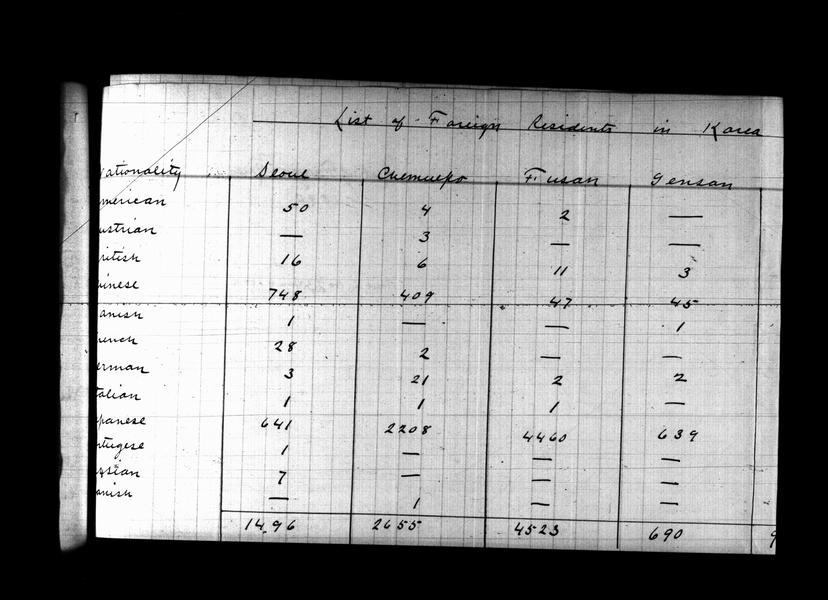 List of Foreign Residents in Korea
ationality Seoul Chemulpo Fusan Gensan
merican 50 4 2 —
ustrian — 3 — —
ritish 16 6 11 3
inese 748 409 47 45
anish 1 — — 1
rench 28 2 — —
erman 3 21 2 2
talian 1 1 1 —
panese 641 2208 4460 639
rtugese 1 — — —
ssian 7 — — —
anish — 1 — —
1496 2655 4523 690 9